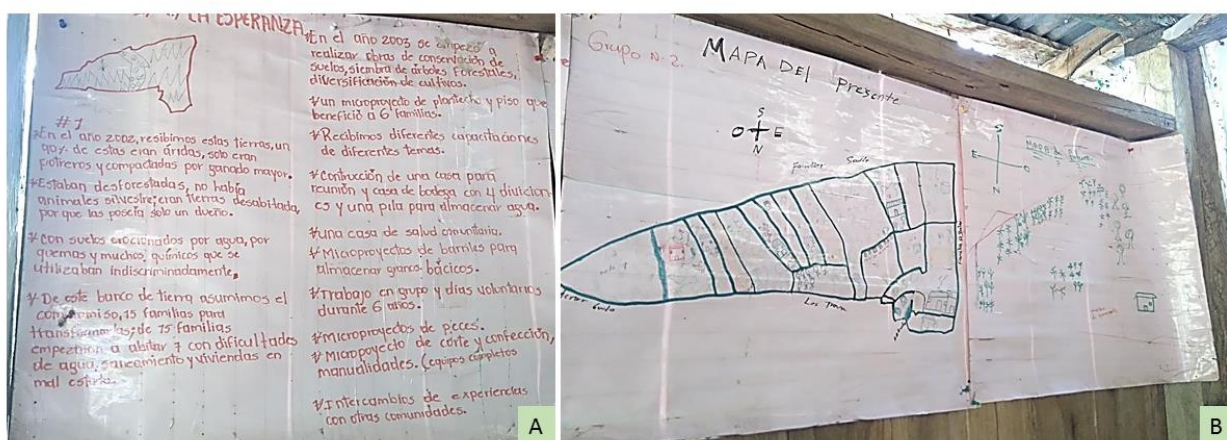 LA ESPERANZA
#1
En el año 2002, resibimos estas tierras, un
90% de estas eran áridas, solo eran
potreros y compactadas por ganado mayor.
Estaban desforestadas, no había
animales silvestre, eran tierras desabitada,
por que las poseía solo un dueño.
Con suelos erocionados por agua, por
quemas y muchos químicos que se
utilizaban indiscriminadamente,
De este banco de tierra asumimos el
compromiso, 15 familias para
transformarlas; de 15 familias
empezaron a abitar 7 con dificultades
de agua, saneamiento y viviendas en
mal estado.
En el año 2003 se empezó a
realizar obras de conservación de
suelos, siembra de árboles Forestales,
diversificación de cultivos.
un microproyecto de plantecho y piso que
benefició a 6 familias.
Recibimos diferentes capacitaciones
de diferentes temas.
Contrucción de una casa para
reunión y casa de bodega con 4 divicion-
es y una pila para almacenar agua.
una casa de salud comunitaria.
Microproyectos de barriles para
almacenar granos bácicos.
Trabajo en grupo y días voluntarios
durante 6 años.
Microproyectos de peces.
Micropoyecto de corte y confección,
manualidades. (equipos completos
Intercambios de experiencias
con otras comunidades.
A
Grupo N. 2.
MAPA DEL presente
S
O E
N
Los
S
E O
N
MAPA
B